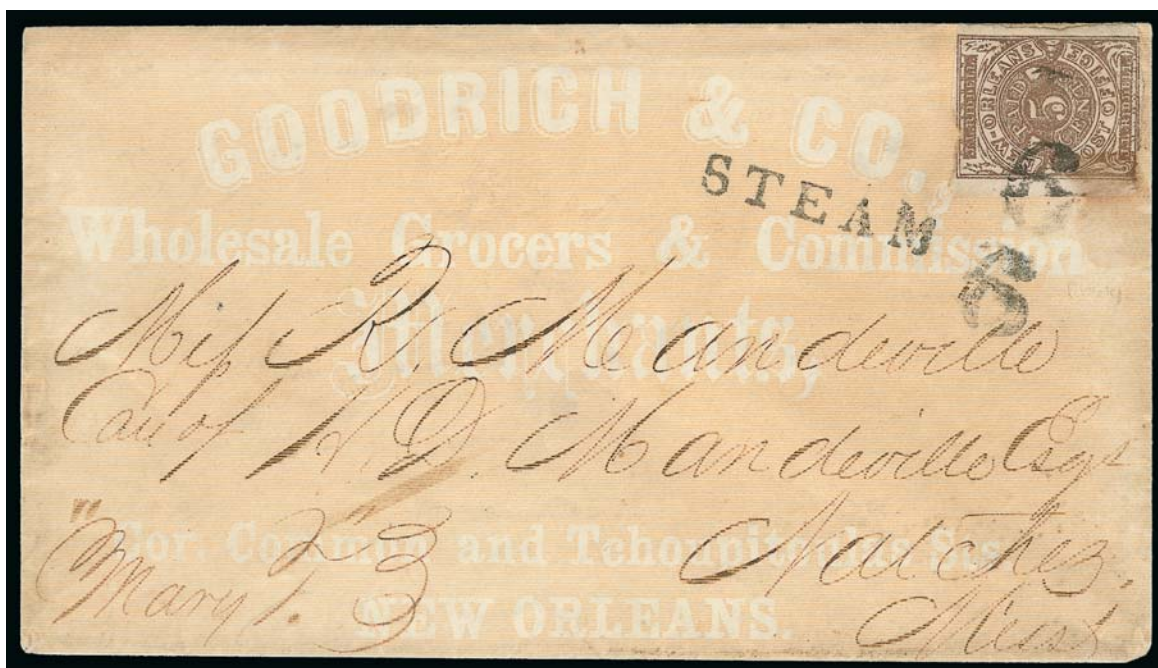 GOODRICH & CO.,
Wholesale Grocers & Commission
Merchants,
Cor. Common and Tchoupitoulas Sts.
NEW ORLEANS.
W-ORLEANS
POST OFFICE
PAID
5
STEAM
6
6
Miss R. Mandeville
Care of H. D. Mandeville Esqr
Natchez,
Miss
"Mary T. 3